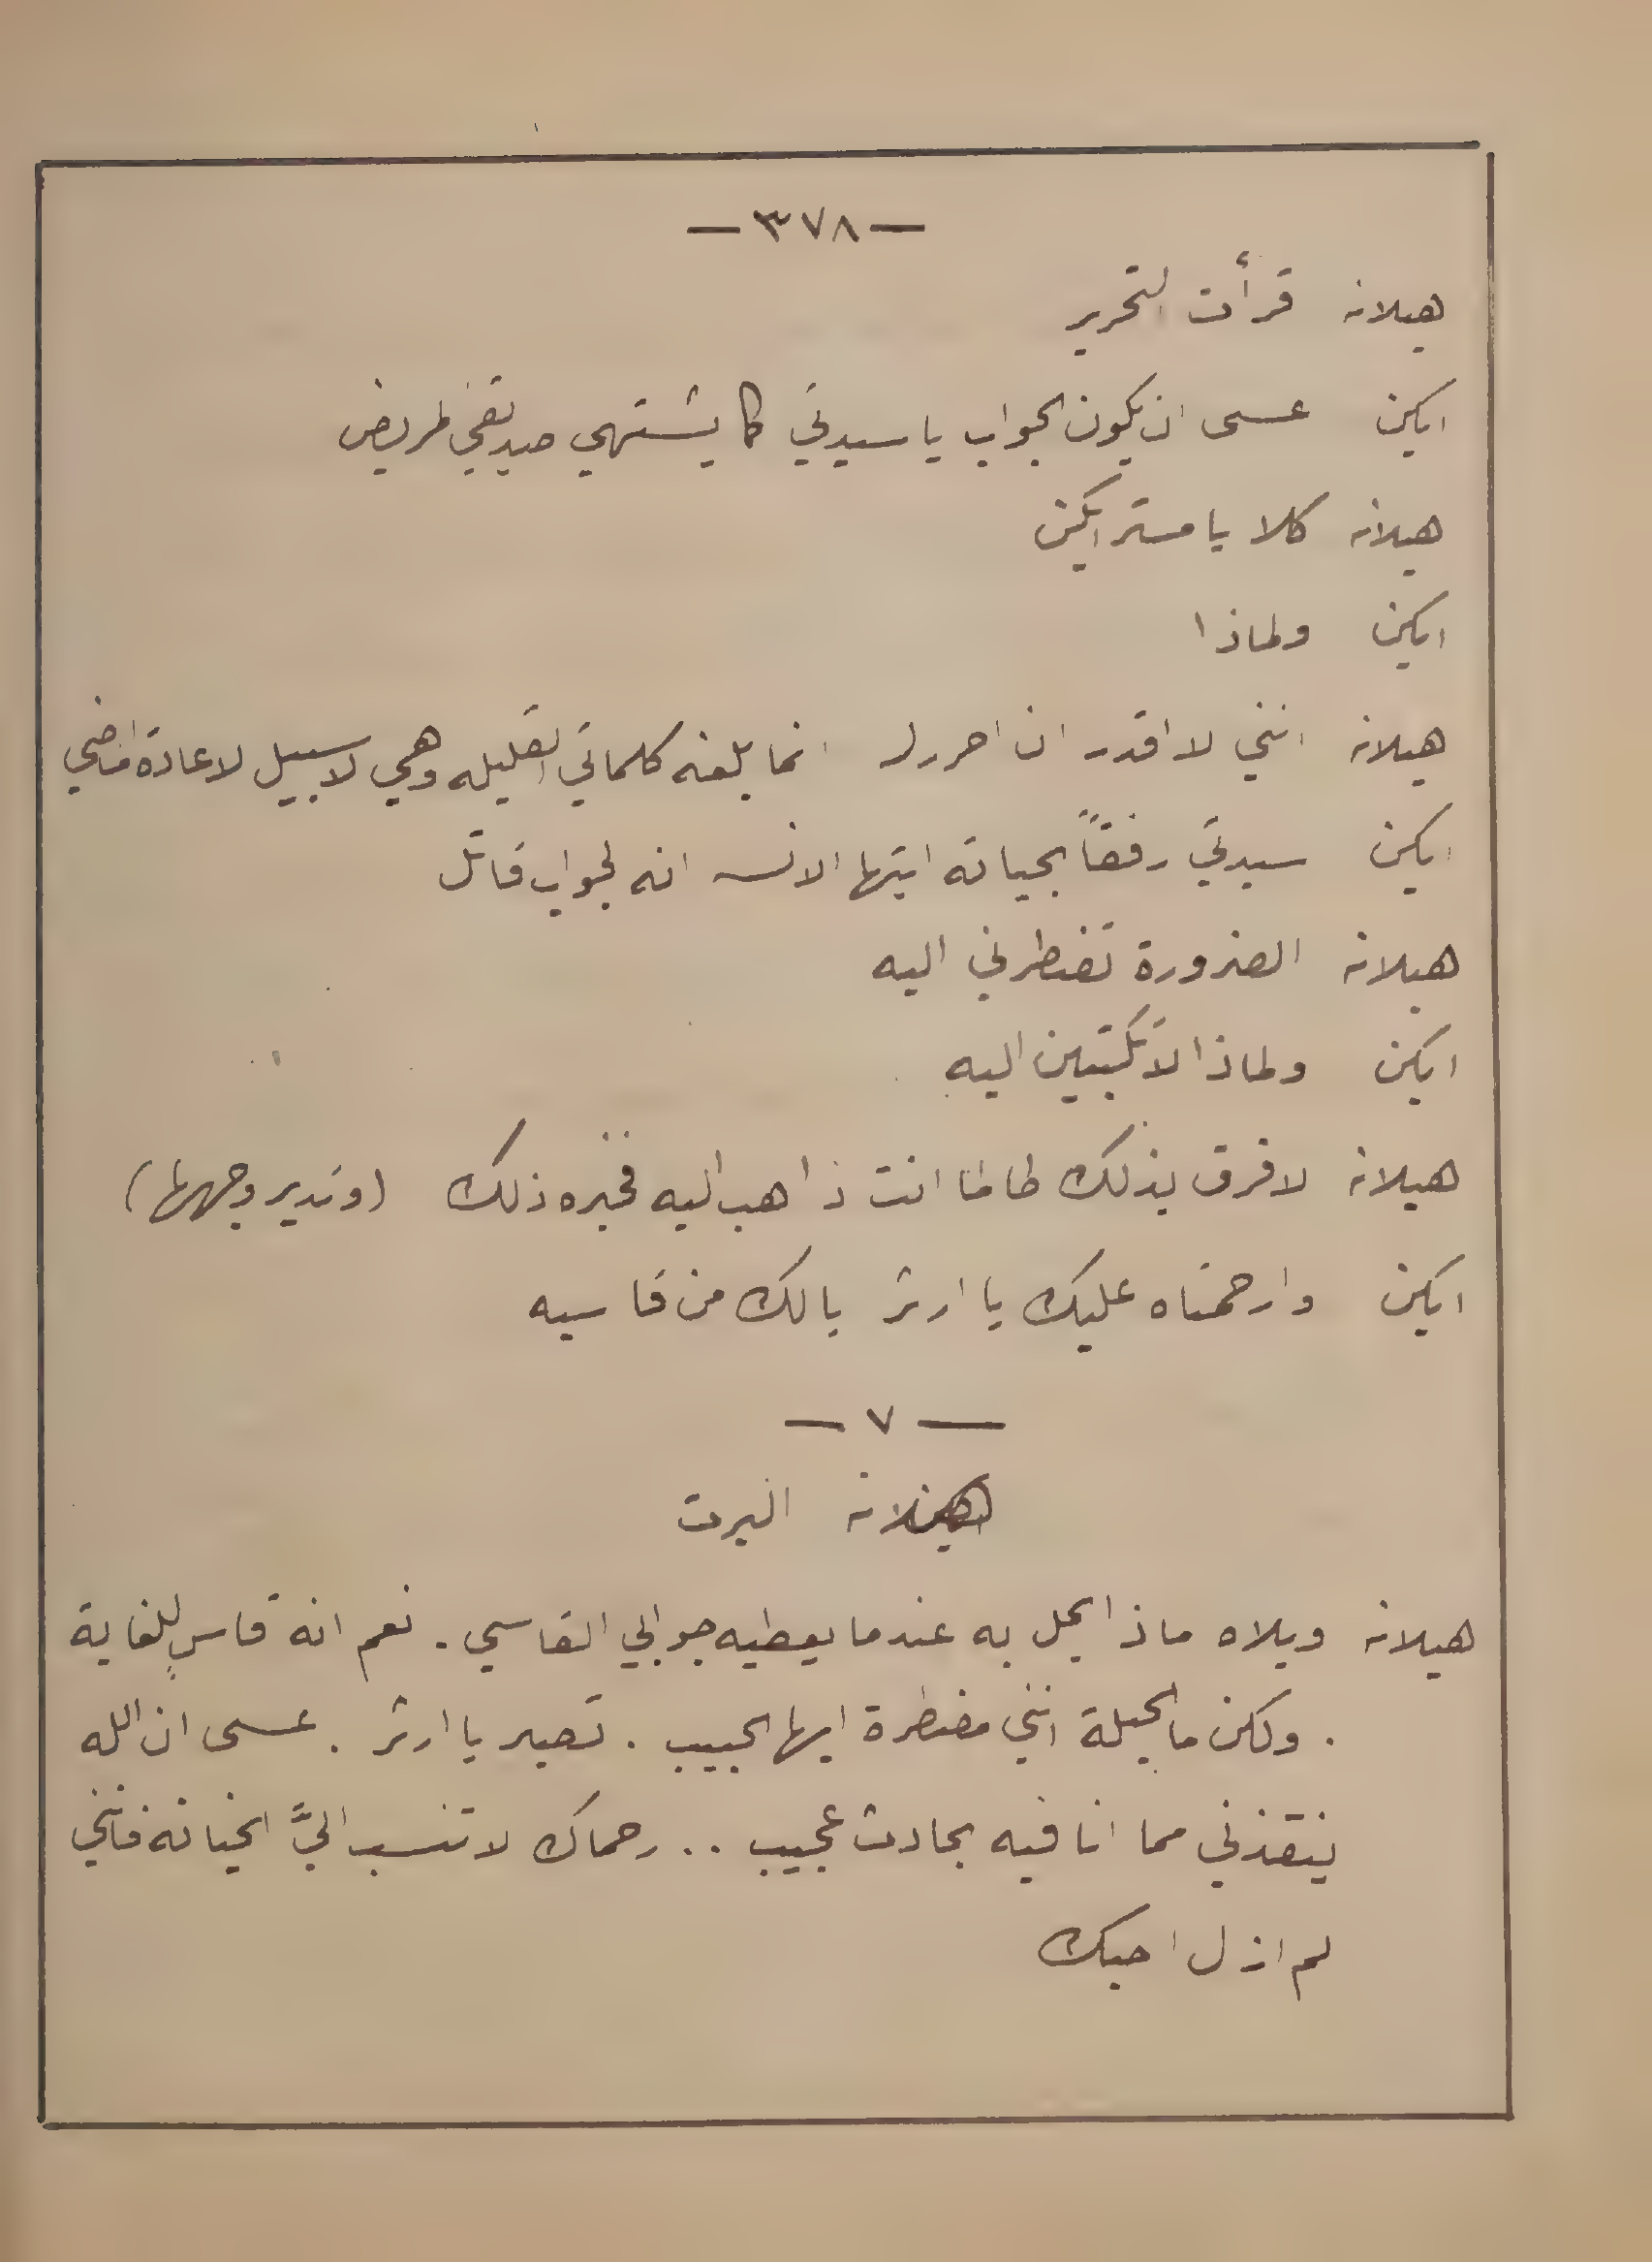 — ٣٧٨ —
هيلانه قرأت التحرير
ايكن عسى ان يكون الجواب يا سيدتي كما يشتهي صديقي المريض
هيلانه كلا يا مستر ايكن
ايكن ولماذا
هيلانه انني لا اقدر ان احرر له انما بلغه كلماتي القليله وهي لا سبيل لاعادة الماضي
ايكن سيدتي رفقاً بحياته ايتها الانسه انه لجواب قاتل
هيلانه الضرورة تضطرني اليه
ايكن ولماذا لا تكتبين اليه
هيلانه لا فرق بذلك طالما انت ذاهب اليه فخبره ذلك (وتدير وجهها)
ايكن وارحمتاه عليك يا ارثر يا لك من قاسيه
— ٧ —
هيلانه البرت
هيلانه ويلاه ماذا يحل به عندما يعطيه جوابي القاسي . نعم انه قاسٍ للغاية
. ولكن ما الحيلة انني مضطرة ايها الحبيب . تصبر يا ارثر . عسى ان الله
ينقذني مما انا فيه بحادث عجيب .. رحماك لا تنسب اليَّ الخيانه فانني
لم ازل احبك